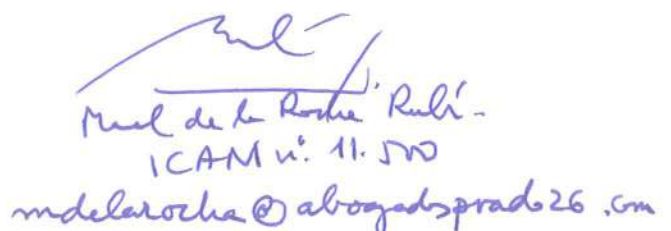 Manuel de la Rocha Rubí-
ICAM nº. 11.500
mdelarocha@abogadosprado26.com